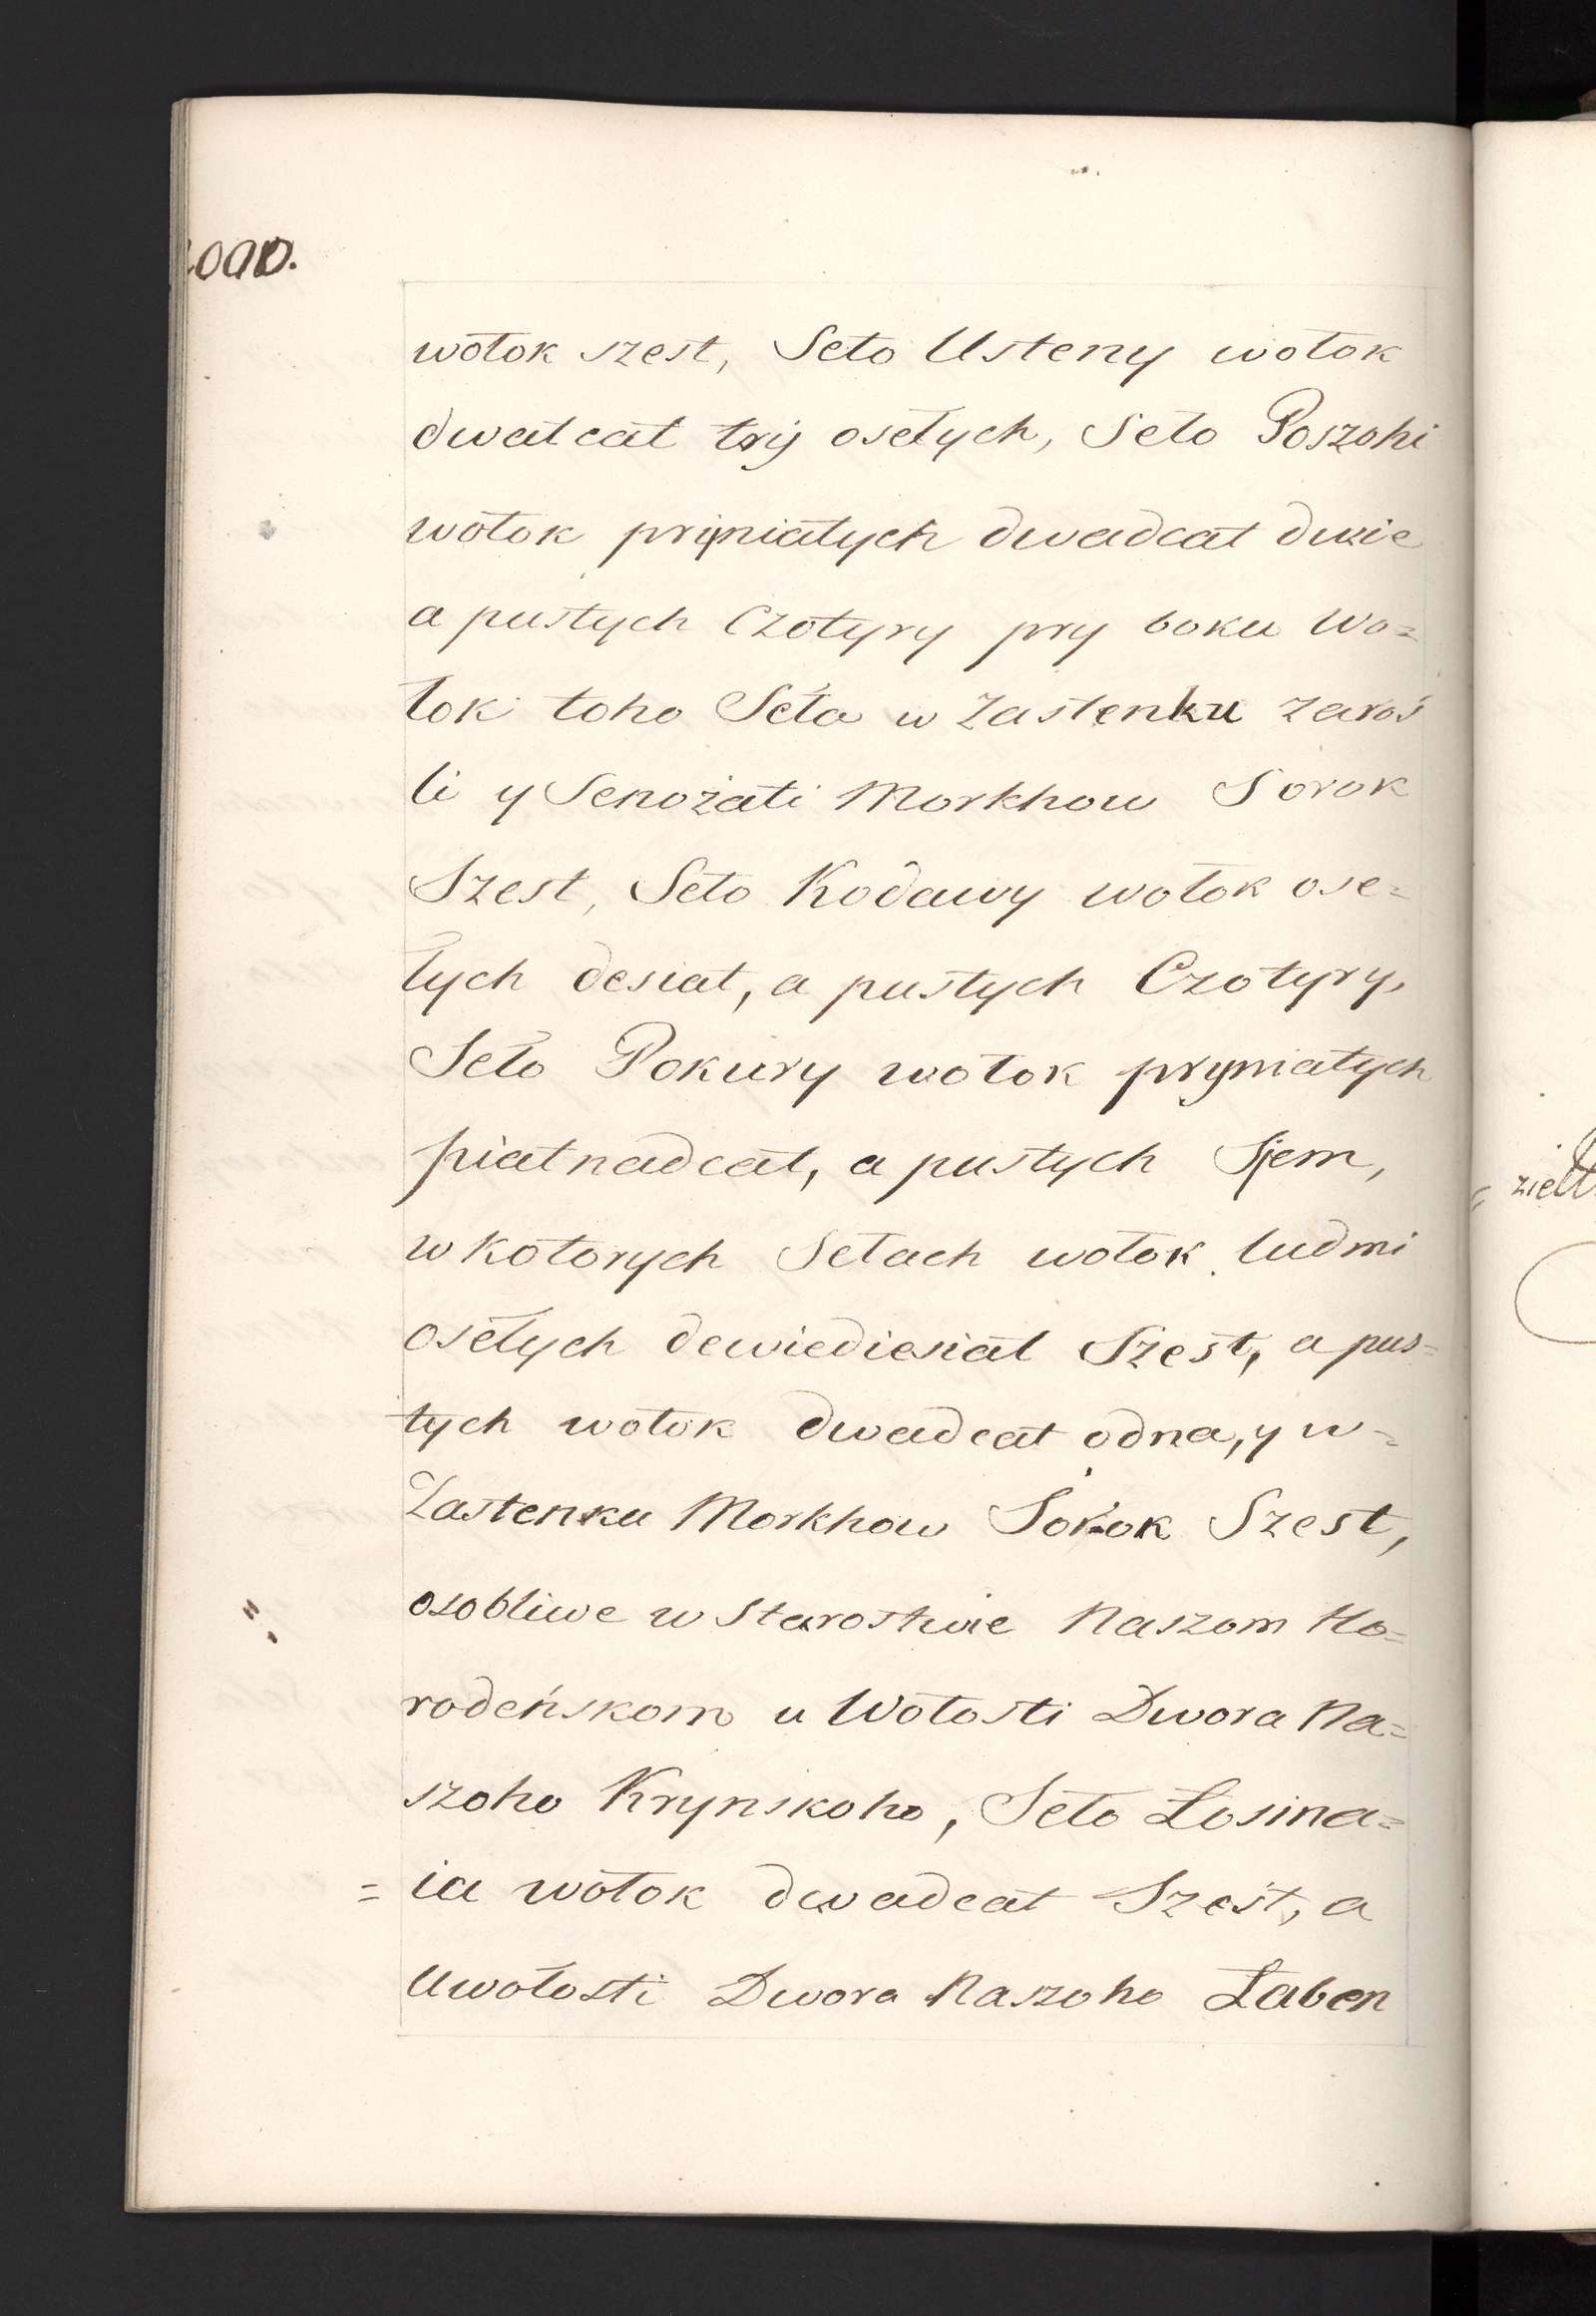 wołok szest, Seło Usteny wołok
dwatcat trij osełych, Seło Poszohi
wołok prijniatych dwadcat dwie
a pustych Czotyry pry boku Wo=
łok toho Seła w Zastenku zaroś
li y Senożati Morkhow Sorok
Szest, Seło Kodawy wołok ose=
łych desiat, a pustych Czotyry,
Seło Pokury wołok pryniatych
piatnadcat, a pustych Sjem,
w kotorych Sełach wołok ludmi
osełych dewiediesiat Szest, a pus=
tych wołok dwadcat odna, y w=
Zastenku Morkhow Sorok Szest,
osobliwe w Starostwie Naszom Ho=
rodeńskom u Wołosti Dwora Na=
szoho Krynskoho, Seło Łosina=
= ia wołok dwadcat Szest, a
Uwołosti Dwora Naszoho Łaben